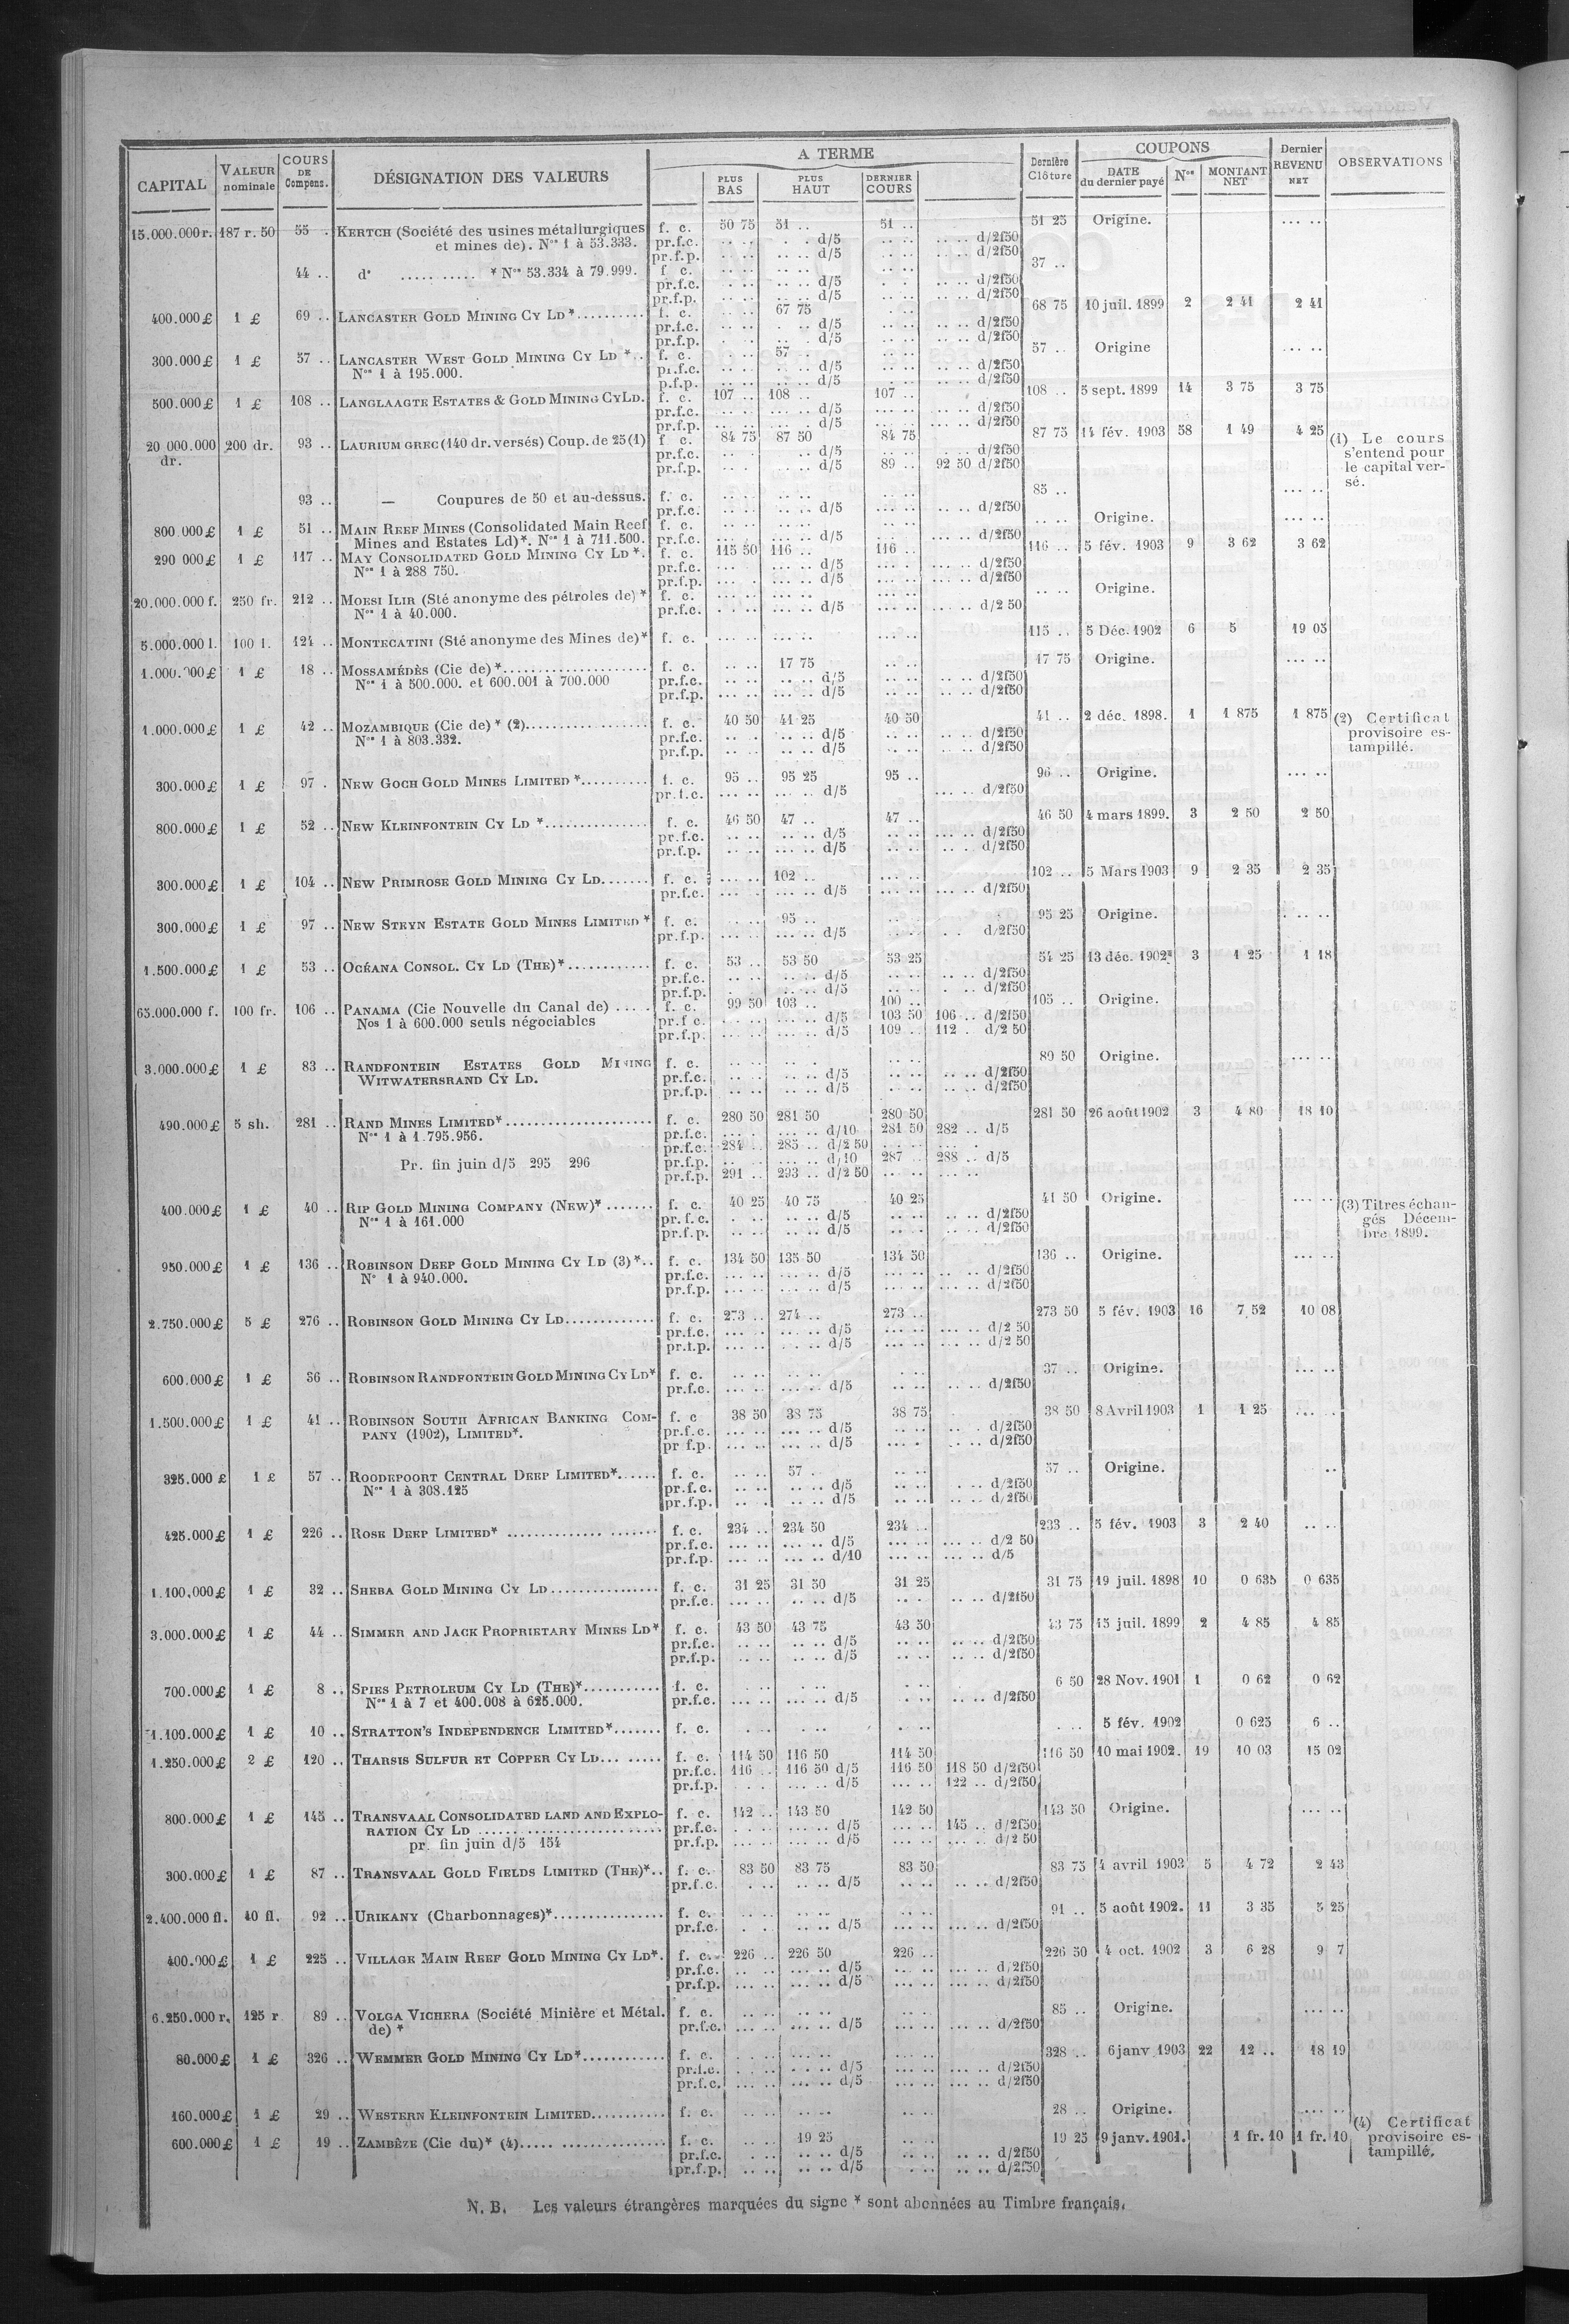 CAPITAL VALEUR nominale COURS DE Compens. DÉSIGNATION DES VALEURS A TERME PLUS BAS PLUS HAUT DERNIER COURS Dernière Clôture COUPONS DATE du dernier payé Nos MONTANT NET Dernier REVENU NET OBSERVATIONS
15.000.000 r. 187 r. 50 55 .. KERTCH (Société des usines métallurgiques f. c. 50 75 51 .. 51 .. 51 25 Origine. ... ..
et mines de). Nos 1 à 53.333. pr.f.c. .. .. .. .. d/5 .. .. .. .. d/2f50
pr.f.p. .. .. .. .. d/5 .. .. .. .. d/2f50
44 .. do .......... * Nos 53.334 à 79.999. f. c. .. .. .. .. .. .. 37 ..
pr.f.c. .. .. .. .. d/5 .. .. d/2f50
pr.f.p. .. .. .. .. d/5 .. .. .. .. d/2f50
400.000 £ 1 £ 69 .. LANCASTER GOLD MINING CY LD *.......... f. c. .. .. 67 75 .. .. 68 75 10 juil. 1899 2 2 41 2 41
pr.f.c. .. .. .. .. d/5 .. .. .. .. d/2f50
pr.f.p. .. .. .. .. d/5 .. .. .. .. d/2f50
300.000 £ 1 £ 57 .. LANCASTER WEST GOLD MINING CY LD *.. f. c. .. .. 57 .. .. .. 57 .. Origine ... ..
Nos 1 à 195.000. pr.f.c. .. .. .. .. d/5 .. .. .. .. d/2f50
p.f.p. .. .. .. .. d/5 .. .. .. .. d/2f50
500.000 £ 1 £ 108 .. LANGLAAGTE ESTATES & GOLD MINING CY LD. f. c. 107 .. 108 .. 107 .. 108 .. 5 sept. 1899 14 3 75 3 75
pr.f.c. ... .. .. .. d/5 .. .. .. .. d/2f50
pr.f.p. ... .. .. .. d/5 .. .. .. .. d/2f50
20 000.000 dr. 200 dr. 93 .. LAURIUM GREC (140 dr. versés) Coup. de 25 (1) f. c. 84 75 87 50 84 75 87 75 14 fév. 1903 58 1 49 4 25 (1) Le cours
pr.f.c. .. .. .. .. d/5 .. .. .. .. d/2f50 s'entend pour
pr.f.p. .. .. .. .. d/5 89 .. 92 50 d/2f50 le capital ver-
sé.
93 .. — Coupures de 50 et au-dessus. f. c. .. .. .. .. .. .. 85 .. ... ..
pr.f.c. .. .. .. .. d/5 .. .. .. .. d/2f50
800 000 £ 1 £ 51 .. MAIN REEF MINES (Consolidated Main Reef f. c. .. .. .. .. .. .. .. .. Origine.
Mines and Estates Ld)*. Nos 1 à 711.500. pr.f.c. .. .. .. .. d/5 .. .. .. .. d/2f50
290 000 £ 1 £ 117 .. MAY CONSOLIDATED GOLD MINING CY LD *. f. c. 115 50 116 .. 116 .. 116 .. 5 fév. 1903 9 3 62 3 62
Nos 1 à 288 750. pr.f.c. ... .. .. .. d/5 ... .. ... .. d/2f50
pr.f.p. ... .. .. .. d/5 ... .. ... .. d/2f50
20.000.000 f. 250 fr. 212 .. MOESI ILIR (Sté anonyme des pétroles de) * f. c. ... .. ... .. ... .. .. .. Origine.
Nos 1 à 40.000. pr.f.c. ... .. ... .. d/5 ... .. ... .. d/2 50
5.000.000 l. 100 l. 124 .. MONTECATINI (Sté anonyme des Mines de)* f. c. ... .. ... .. ... .. 115 .. 5 Déc. 1902 6 5 19 05
1.000.000 £ 1 £ 18 .. MOSSAMÉDÈS (Cie de) *..................... f. c. .. .. 17 75 .. .. 17 75 Origine. ... ..
Nos 1 à 500.000. et 600.001 à 700.000 pr.f.c. .. .. .. .. d/5 .. .. .. .. d/2f50
pr.f.p. .. .. .. .. d/5 .. .. .. .. d/2f50
1.000.000 £ 1 £ 42 .. MOZAMBIQUE (Cie de) * (2).................. f. c. 40 50 41 25 40 50 41 .. 2 déc. 1898. 1 1 875 1 875 (2) Certificat
Nos 1 à 803.332. pr.f.c. .. .. .. .. d/5 .. .. .. .. d/2f50 provisoire es-
pr.f.p. .. .. .. .. d/5 .. .. .. .. d/2f50 tampillé.
300.000 £ 1 £ 97 . NEW GOCH GOLD MINES LIMITED *.......... f. c. 95 .. 95 25 95 .. 96 .. Origine. ... ..
pr.f.c. ... .. ... .. d/5 ... .. d/2f50
800.000 £ 1 £ 52 .. NEW KLEINFONTEIN CY LD *............... f. c. 46 50 47 .. 47 .. 46 50 4 mars 1899. 3 2 50 2 50
pr.f.c. .. .. ... .. d/5 .. .. ... .. d/2f50
pr.f.p. .. .. ... .. d/5 .. .. ... .. d/2f50
300.000 £ 1 £ 104 .. NEW PRIMROSE GOLD MINING CY LD....... f. c. ... .. 102 .. ... .. 102 .. 5 Mars 1903 9 2 35 2 35
pr.f.c. ... .. ... .. d/5 ... .. ... .. d/2f50
300.000 £ 1 £ 97 .. NEW STEYN ESTATE GOLD MINES LIMITED * f. c. .. .. 95 .. .. .. 95 25 Origine. ... ..
pr.f.p. ... .. ... .. d/5 .. .. .. d/2f50
1.500.000 £ 1 £ 53 .. OCÉANA CONSOL. CY LD (THE)*............ f. c. 53 .. 53 50 53 25 54 25 13 déc. 1902 3 1 25 1 18
pr.f.c. .. .. .. .. d/5 .. .. .. .. d/2f50
pr.f.p. .. .. .. .. d/5 .. .. .. .. d/2f50
65.000.000 f. 100 fr. 106 .. PANAMA (Cie Nouvelle du Canal de) ..... f. c. 99 50 103 .. 100 .. 105 .. Origine. ... ..
Nos 1 à 600.000 seuls négociables pr.f.c. ... .. ... .. d/5 103 50 106 .. d/2f50
pr.f.p. ... .. ... .. d/5 109 .. 112 .. d/2 50
3.000.000 £ 1 £ 83 .. RANDFONTEIN ESTATES GOLD MINING f. c. .. .. .. .. .. .. 80 50 Origine. ... ..
WITWATERSRAND CY LD. pr.f.c. .. .. .. .. d/5 .. .. .. .. d/2f50
pr.f.p. .. .. .. .. d/5 .. .. .. .. d/2f50
490.000 £ 5 sh. 281 .. RAND MINES LIMITED*..................... f. c. 280 50 281 50 280 50 281 50 26 août 1902 3 4 80 18 10
Nos 1 à 1.795.956. pr.f.c. ... .. ... .. d/10 281 50 282 .. d/5
pr.f.c. 284 .. 285 .. d/2 50 ... .. ... ..
Pr. fin juin d/5 295 296 pr.f.p. ... .. ... .. d/10 287 .. 288 .. d/5
pr.f.p. 291 .. 293 .. d/2 50 ... .. ... ..
400.000 £ 1 £ 40 .. RIP GOLD MINING COMPANY (NEW)*....... f. c. 40 25 40 75 40 25 41 50 Origine. ... .. (3) Titres échan-
Nos 1 à 161.000 pr.f.c. .. .. .. .. d/5 .. .. .. .. d/2f50 gés Décem-
pr.f.p. .. .. .. .. d/5 .. .. .. .. d/2f50 bre 1899.
950.000 £ 1 £ 136 .. ROBINSON DEEP GOLD MINING CY LD (3)*.. f. c. 134 50 135 50 134 50 136 .. Origine. ... ..
No 1 à 940.000. pr.f.c. ... .. ... .. d/5 ... .. .. .. d/2f50
pr.f.p. ... .. ... .. d/5 ... .. .. .. d/2f50
2.750.000 £ 5 £ 276 .. ROBINSON GOLD MINING CY LD............. f. c. 273 .. 274 .. 273 .. 273 50 5 fév. 1903 16 7 52 10 08
pr.f.c. ... .. ... .. d/5 ... .. ... .. d/2 50
pr.f.p. ... .. ... .. d/5 ... .. ... .. d/2 50
600.000 £ 1 £ 36 .. ROBINSON RANDFONTEIN GOLD MINING CY LD* f. c. .. .. .. .. .. .. 37 .. Origine. ... ..
pr.f.c. ... .. ... .. d/5 .. .. .. .. d/2f50
1.500.000 £ 1 £ 41 .. ROBINSON SOUTH AFRICAN BANKING COM- f. c 38 50 38 75 38 75 38 50 8 Avril 1903 1 1 25 ... ..
PANY (1902), LIMITED*. pr.f.c. ... .. ... .. d/5 .. .. .. . d/2f50
pr f.p. ... .. ... .. d/5 ... . .. .. d/2f50
325.000 £ 1 £ 57 .. ROODEPOORT CENTRAL DEEP LIMITED*...... f. c. .. .. 57 .. .. .. 57 .. Origine. ..
Nos 1 à 308.125 pr.f.c. .. .. .. .. d/5 .. .. .. .. d/2f50
pr.f.p. .. .. .. .. d/5 .. .. .. .. d/2f50
425.000 £ 1 £ 226 .. ROSE DEEP LIMITED* ..................... f. c. 234 .. 234 50 234 .. 233 .. 5 fév. 1903 3 2 40 .. ..
pr.f.c. ... .. ... .. d/5 ... .. ... .. d/2 50
pr.f.p. ... .. ... .. d/10 ... .. ... .. d/5
1.100.000 £ 1 £ 32 .. SHEBA GOLD MINING CY LD................ f. c. 31 25 31 50 31 25 31 75 19 juil. 1898 10 0 635 0 635
pr.f.c. ... .. .. .. d/5 .. . .. .. d/2f50
3.000.000 £ 1 £ 44 .. SIMMER AND JACK PROPRIETARY MINES LD* f. c. 43 50 43 75 43 50 43 75 15 juil. 1899 2 4 85 4 85
pr.f.c. .. .. .. .. d/5 .. .. .. .. d/2f50
pr.f.p. .. .. .. .. d/5 .. .. .. .. d/2f50
700.000 £ 1 £ 8 .. SPIES PETROLEUM CY LD (THE)*........... f. c. .. .. .. .. .. .. 6 50 28 Nov. 1901 1 0 62 0 62
Nos 1 à 7 et 400.008 à 625.000. pr.f.c. ... .. ... .. d/5 .. .. .. .. d/2f50
1.100.000 £ 1 £ 10 .. STRATTON'S INDEPENDENCE LIMITED*....... f. c. .. .. .. .. .. .. .. .. 5 fév. 1902 0 625 6 ..
1.250.000 £ 2 £ 120 .. THARSIS SULFUR ET COPPER CY LD... ..... f. c. 114 50 116 50 114 50 116 50 10 mai 1902. 19 10 03 15 02
pr.f.c. 116 .. 116 50 d/5 116 50 118 50 d/2f50
pr.f.p. ... .. ... .. d/5 ... .. 122 .. d/2f50
800.000 £ 1 £ 145 .. TRANSVAAL CONSOLIDATED LAND AND EXPLO- f. c. 142 .. 143 50 142 50 143 50 Origine. ... ..
RATION CY LD .......................... pr.f.c. ... .. ... .. d/5 ... .. 145 .. d/2f50
pr. fin juin d/5 154 pr.f.p. ... .. ... .. d/5 ... .. ... .. d/2 50
300.000 £ 1 £ 87 .. TRANSVAAL GOLD FIELDS LIMITED (THE)*.. f. c. 83 50 83 75 83 50 83 75 4 avril 1903 5 4 72 2 43
pr.f.c. .. .. .. .. d/5 .. .. .. .. d/2f50
2.400.000 fl. 40 fl. 92 .. URIKANY (Charbonnages)*................ f. c. .. .. .. .. .. .. 91 .. 5 août 1902. 11 3 35 5 25
pr.f.c. .. .. .. .. d/5 ... .. ... .. d/2f50
400.000 £ 1 £ 225 .. VILLAGE MAIN REEF GOLD MINING CY LD*. f. c. 226 .. 226 50 226 .. 226 50 4 oct. 1902 3 6 28 9 7
pr.f.c. .. .. ... .. d/5 ... .. ... .. d/2f50
pr.f.p. .. .. ... .. d/5 ... .. ... .. d/2f50
6.250.000 r. 125 r 89 .. VOLGA VICHERA (Société Minière et Métal. f. c. .. .. .. .. .. .. 85 .. Origine. ... ..
de) * pr.f.c. ... .. ... .. d/5 ... .. ... .. d/2f50
80.000 £ 1 £ 326 .. WEMMER GOLD MINING CY LD*............ f. c. ... .. ... .. ... .. 328 .. 6 janv 1903 22 12 .. 18 19
pr.f.c. ... .. ... .. d/5 ... .. ... .. d/2f50
pr.f.c. ... .. ... .. d/5 ... .. ... .. d/2f50
160.000 £ 1 £ 29 .. WESTERN KLEINFONTEIN LIMITED........... f. c. .. .. .. .. .. .. 28 .. Origine. ... .. (4) Certificat
600.000 £ 1 £ 19 .. ZAMBÈZE (Cie du)* (4)..... ............... f. c. .. .. 19 25 .. .. 19 25 9 janv. 1901. 1 fr. 10 1 fr. 10 provisoire es-
pr.f.c. .. .. .. .. d/5 .. .. .. .. d/2f50 tampillé.
pr.f.p. .. .. .. .. d/5 .. .. .. .. d/2f50
N. B. Les valeurs étrangères marquées du signe * sont abonnées au Timbre français.